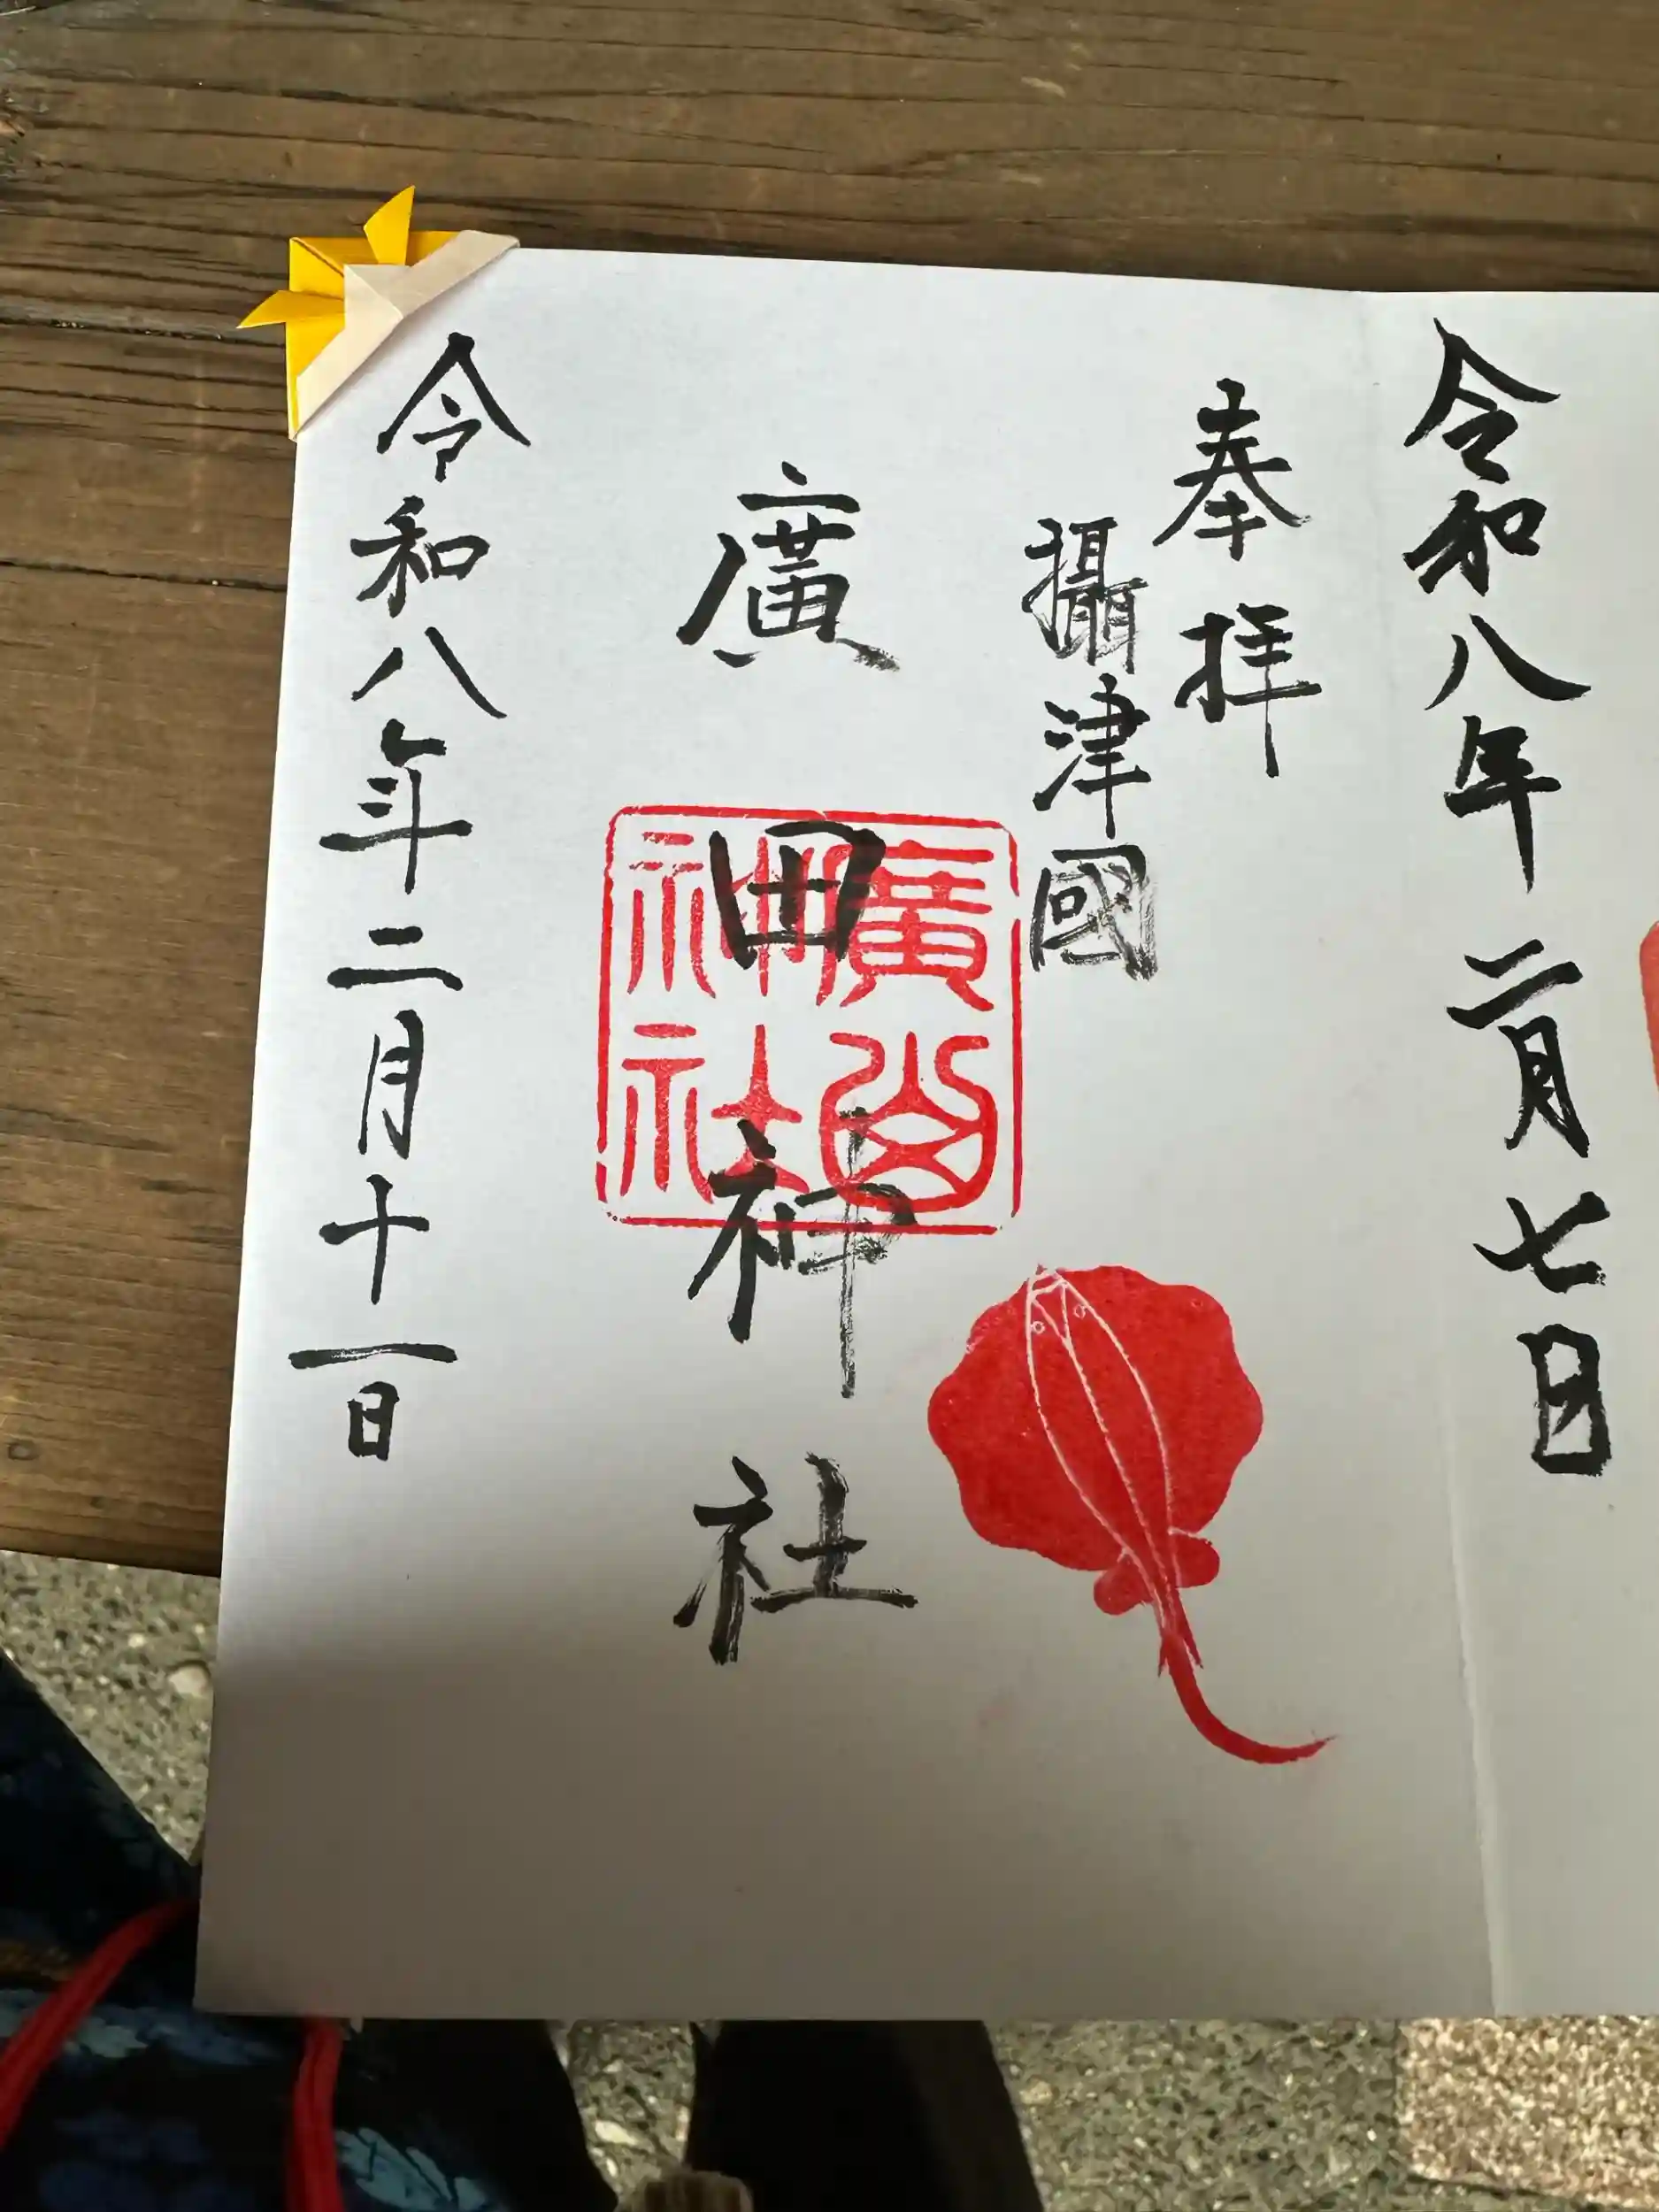 令和八年二月七日
奉拝
攝津國
廣田神社
廣
神社
令和八年二月十一日